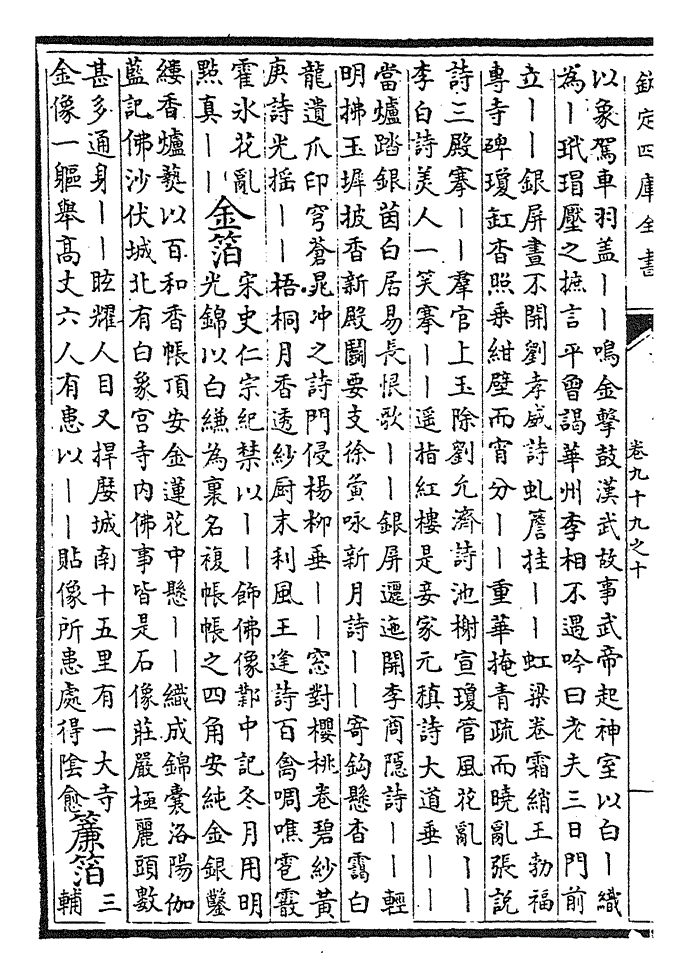 欽定四庫全書 卷九十九之十
以象駕車羽盖丨丨鳴金擊鼓漢武故事武帝起神室以白丨織
為丨玳瑁壓之摭言平曾謁華州李相不遇吟曰老夫三日門前
立丨丨銀屏晝不開劉孝威詩虬簷挂丨丨虹梁卷霜綃王勃福
專寺碑瓊缸杳照乘紺壁而宵分丨丨重華掩青疏而曉亂張説
詩三殿搴丨丨羣官上玉除劉允濟詩池榭宣瓊管風花亂丨丨
李白詩美人一笑搴丨丨遥指紅樓是妾家元稹詩大道垂丨丨
當爐踏銀茵白居易長恨歌丨丨銀屏邐迤開李商隱詩丨丨輕
明拂玉墀披香新殿鬭要支徐夤咏新月詩丨丨寄鈎懸杳靄白
龍遺爪印穹蒼晁冲之詩門侵楊柳垂丨丨窓對櫻桃卷碧紗黄
庚詩光揺丨丨梧桐月香透紗厨末利風王逢詩百禽啁噍雹霰
霍氷花亂
點真丨丨
金箔
宋史仁宗紀禁以丨丨飾佛像鄴中記冬月用明
光錦以白縑為裏名複帳帳之四角安純金銀鑿
縷香爐爇以百和香帳頂安金蓮花中懸丨丨織成錦囊洛陽伽
藍記佛沙伏城北有白象宫寺内佛事皆是石像莊嚴極麗頭數
甚多通身丨丨眩耀人目又捍䃺城南十五里有一大寺
金像一軀舉高丈六人有患以丨丨貼像所患處得陰愈
簾箔
三
輔